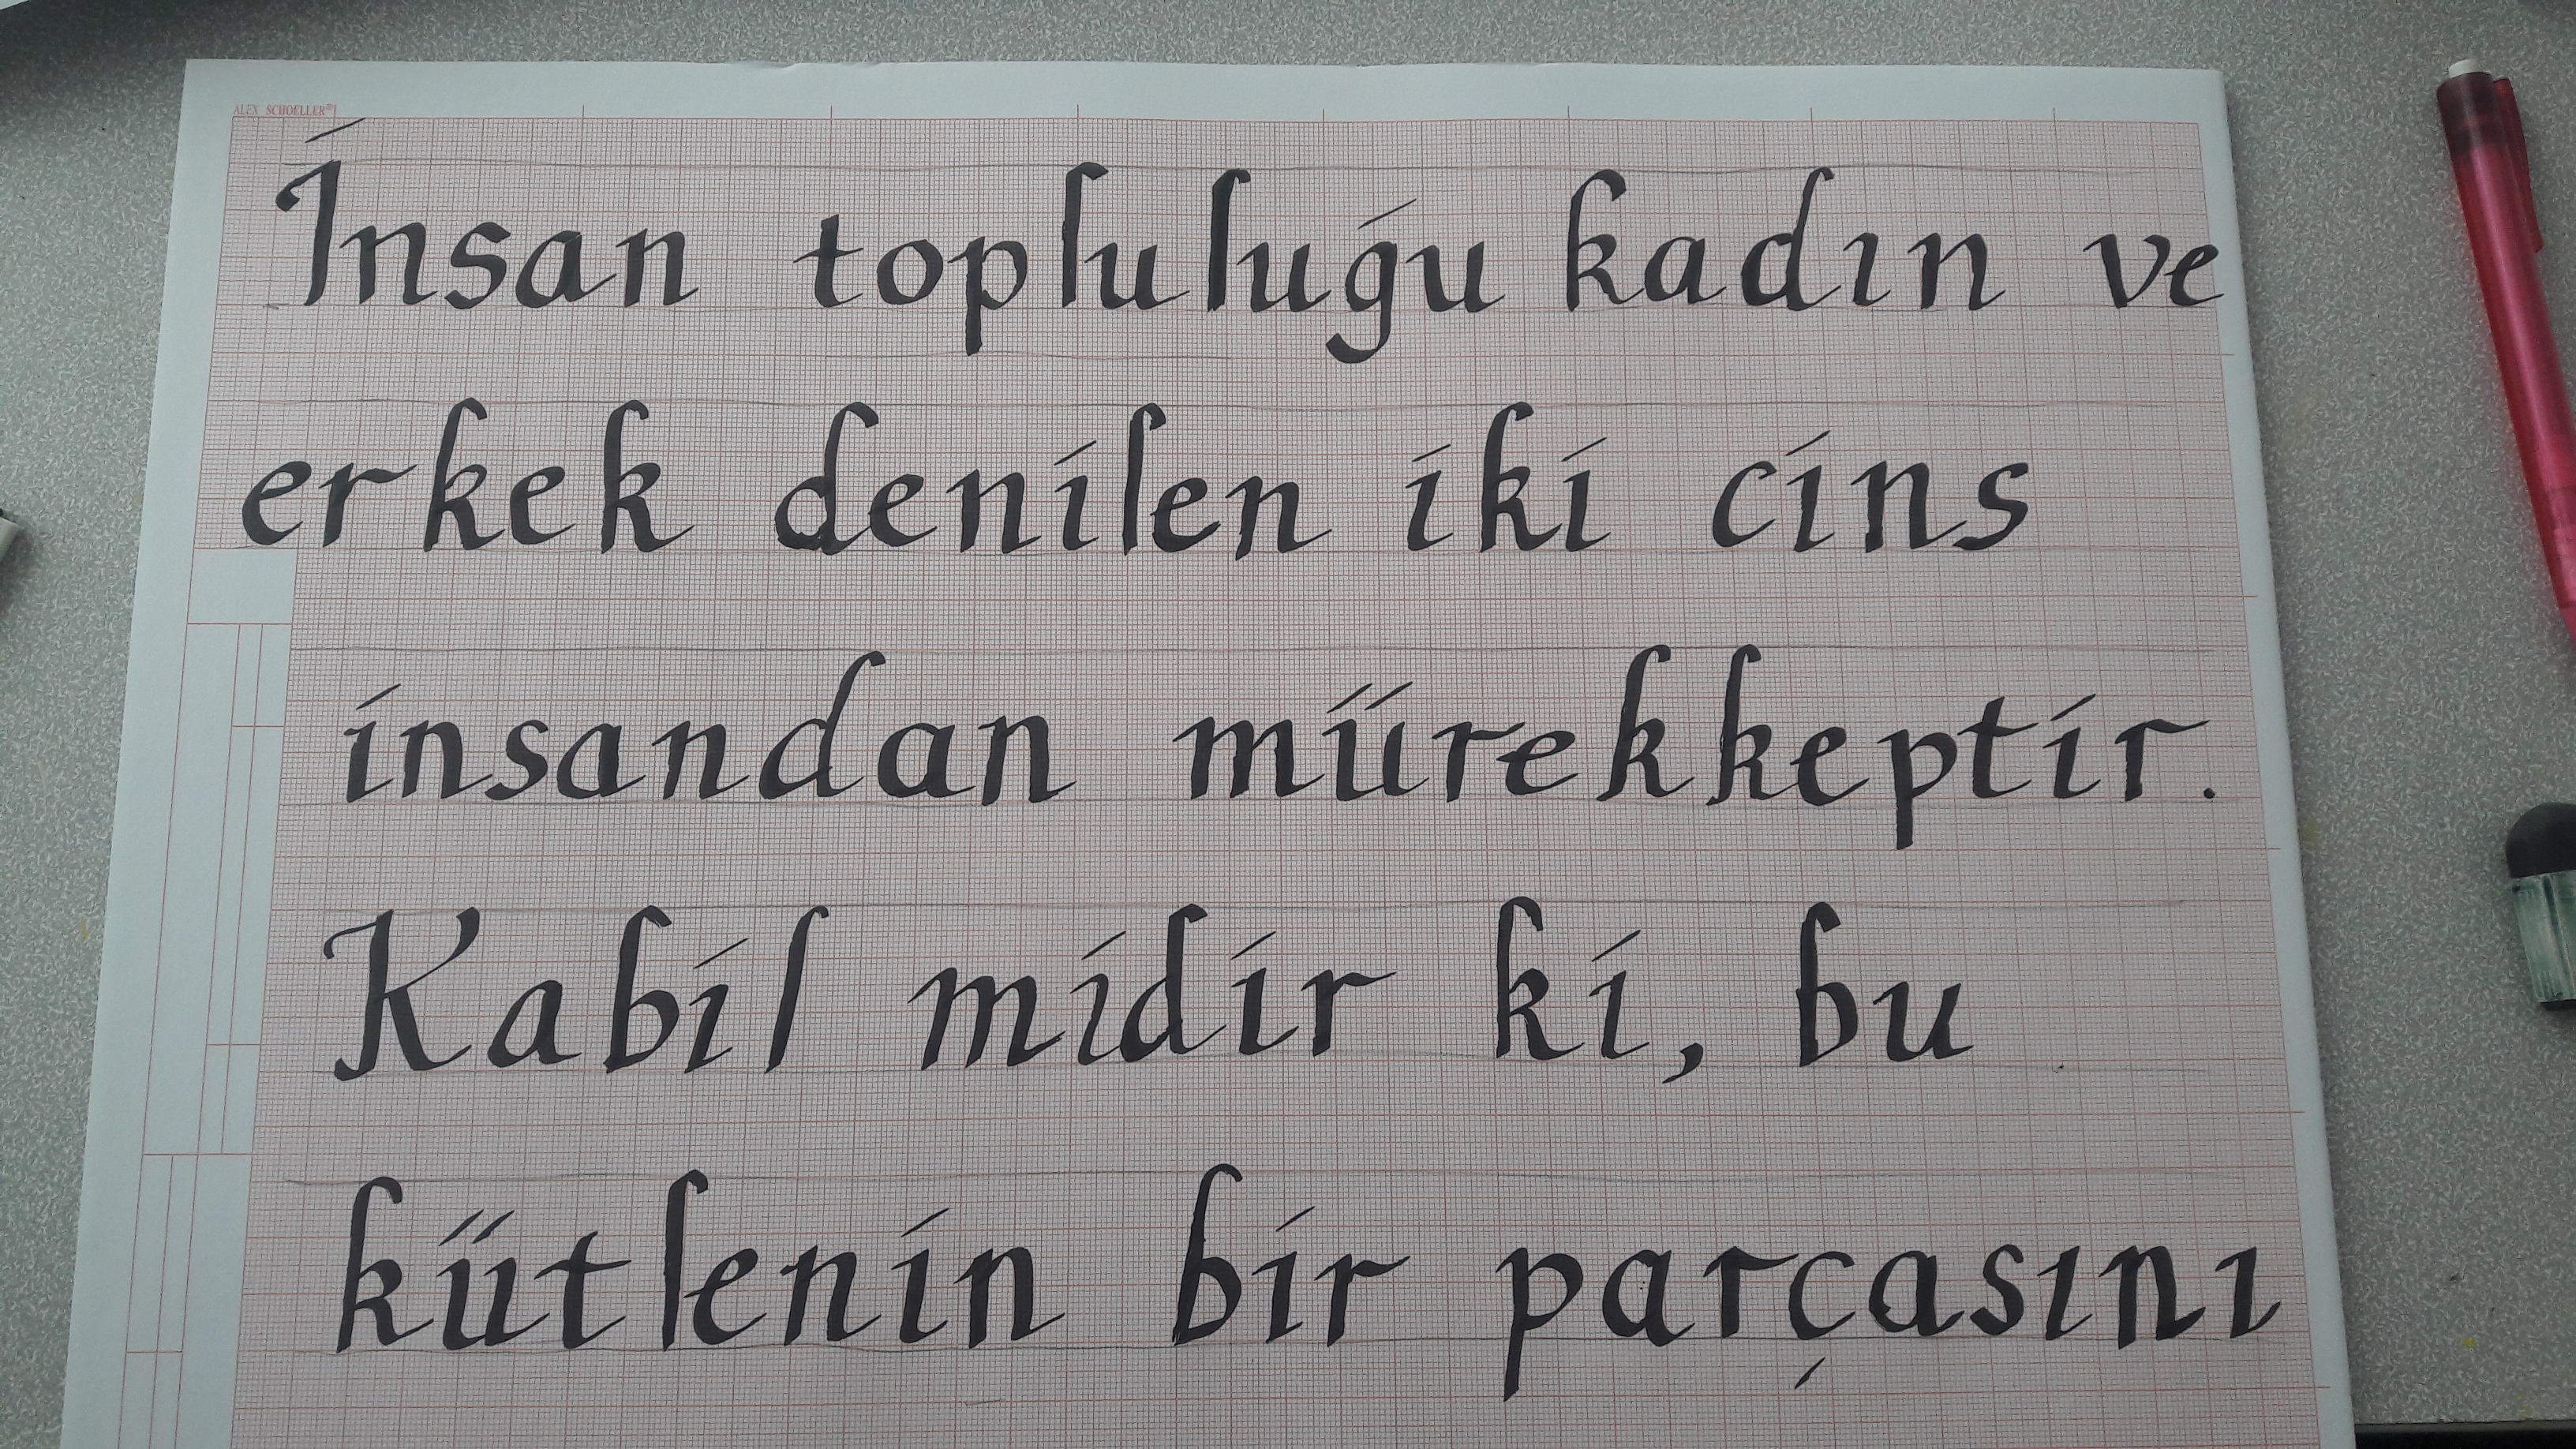 ALEX SCHOELLER®
İnsan topluluğu kadın ve
erkek denilen iki cins
insandan mürekkeptir.
Kabil midir ki, bu
kütlenin bir parçasını